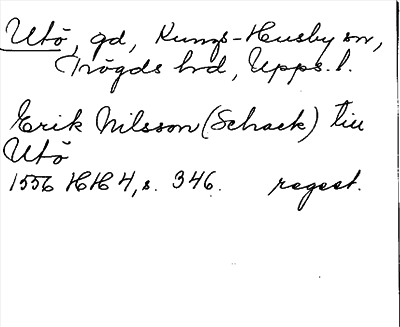 Utö, gd, Kungs-Husby sn,
Trögds hd, Upps. l.
Erik Nilsson (Schack) till
Utö
1556 HH 4, s. 346. regest.